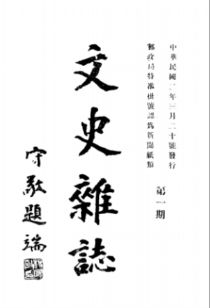 中華民國二年三月二十號發行
郵政局特准掛號認爲新聞紙類
第一期
文史雜誌
守敬題端